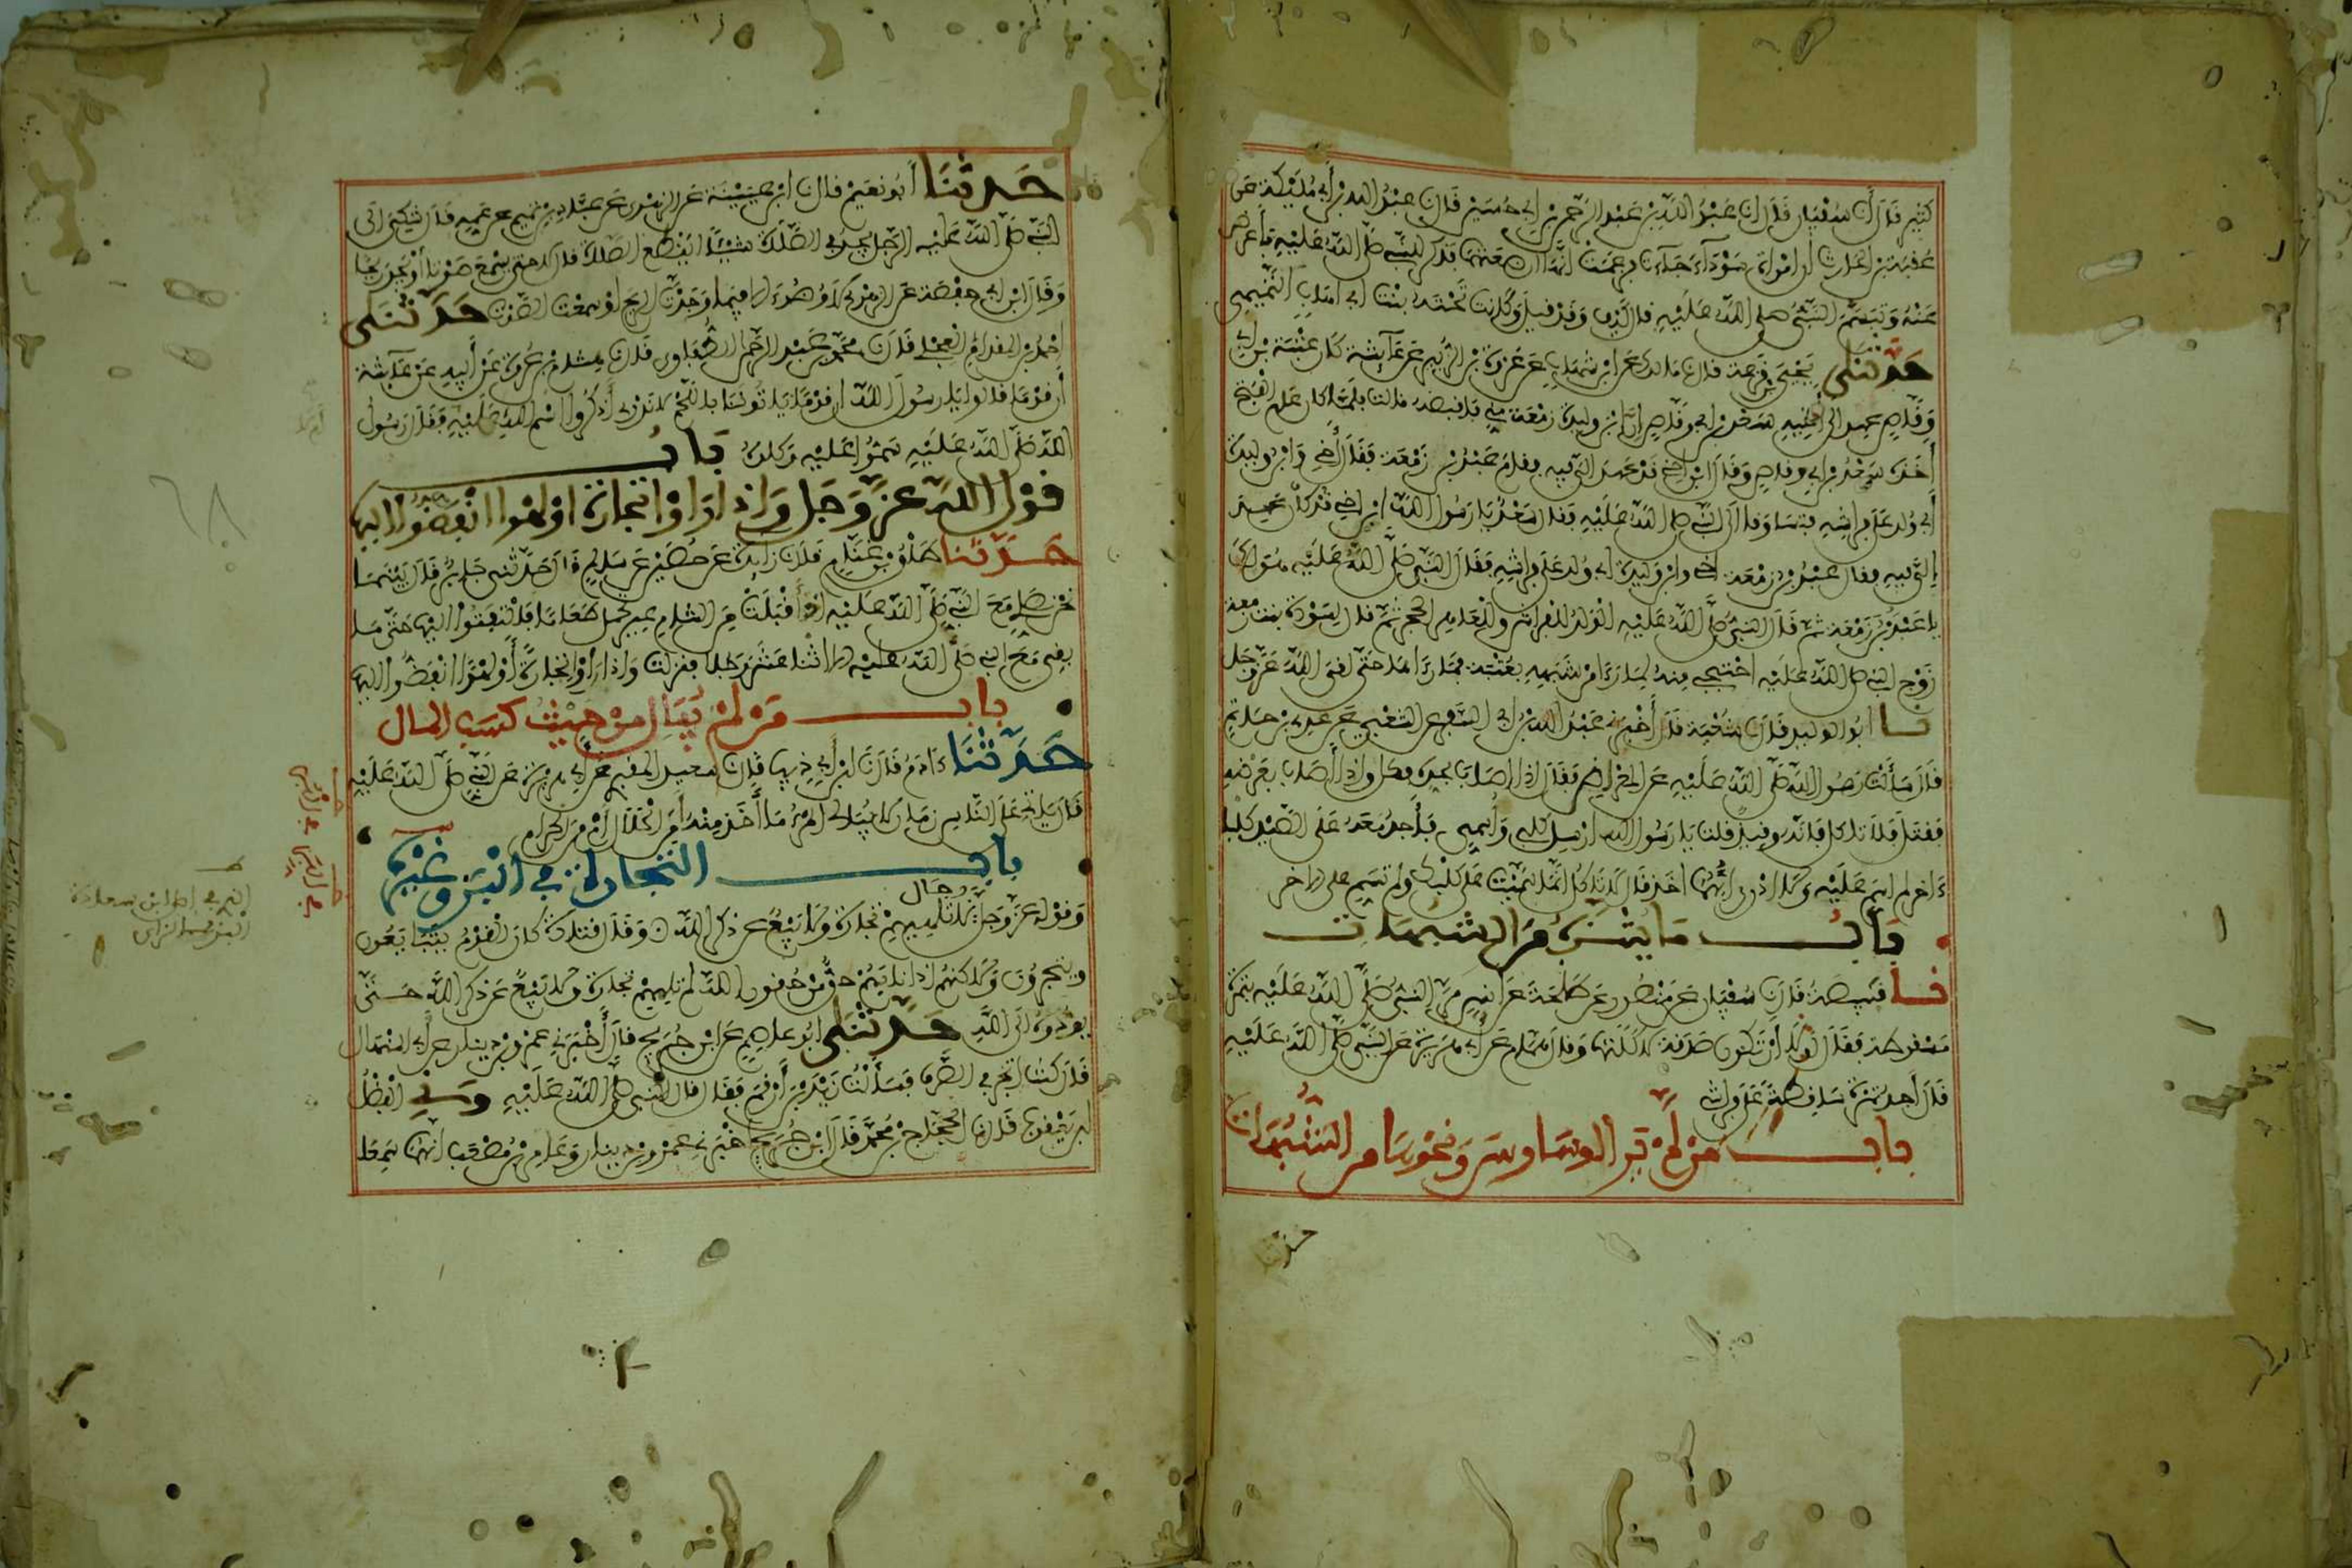 كثير قال أن سفيان قال ان عبد الله بن عبد الرحمن بن أبي حسين قال ن عبد الله بن أبي مليكة عن
عقبة بن الحارث أن امرأة سوداء جاءت فزعمت أنها أرضعتهما فذكر للنبي صلى الله عليه فأعرض
عنه وتبسم النبي صلى الله عليه قال كيف وقد قيل وكانت تحته بنت أبي إهاب التميمي
حدثني يحيى بن قزعة قال ن مالك عن ابن شهاب عن عروة بن الزبير عن عائشة كان عتبة بن أبي
وقاص عهد إلى أخيه سعد بن أبي وقاص أن ابن وليدة زمعة مني فاقبضه قالت فلما كان عام الفتح
أخذه سعد بن أبي وقاص وقال ابن أخي قد عهد إلي فيه فقام عبد بن زمعة فقال أخي وابن وليدة
أبي ولد على فراشه فتساوقا إلى النبي صلى الله عليه فقال سعد يا رسول الله ابن أخي قد كان عهد
إلي فيه فقال عبد بن زمعة أخي وابن وليدة أبي ولد على فراشه فقال النبي صلى الله عليه هو لك
يا عبد بن زمعة ثم قال النبي صلى الله عليه الولد للفراش وللعاهر الحجر ثم قال لسودة بنت زمعة
زوج النبي صلى الله عليه احتجبي منه لما رأى من شبهه بعتبة فما رآها حتى لقي الله عز وجل
نا أبو الوليد قال ن شعبة قال أخبرني عبد الله بن أبي السفر عن الشعبي عن عدي بن حاتم
قال سألت رسول الله صلى الله عليه عن المعراض فقال إذا أصاب بحده فكل وإذا أصاب بعرضه
فقتل فلا تأكل فإنه وقيذ قلت يا رسول الله أرسل كلبي وأسمي فأجد معه على الصيد كلبا
ءاخر لم أسم عليه ولا أدري أيهما أخذ قال لا تأكل إنما سميت على كلبك ولم تسم على الآخر
باب ما يتنزه من الشبهات
نا قبيصة قال ن سفيان عن منصور عن طلحة عن أنس مر النبي صلى الله عليه بتمرة
مسقوطة فقال لولا أن تكون صدقة لأكلتها وقال همام عن أبي هريرة عن النبي صلى الله عليه
قال أجد تمرة ساقطة على فراشي
باب من لم ير الوساوس ونحوها من الشبهات
حدثنا
حدثنا أبو نعيم قال ن ابن عيينة عن الزهري عن عباد بن تميم عن عمه قال شكي إلى
النبي صلى الله عليه الرجل يجد في الصلاة شيئا أيقطع الصلاة قال لا حتى يسمع صوتا أو يجد ريحا
وقال ابن أبي حفصة عن الزهري لا وضوء إلا فيما وجدت الريح أو سمعت الصوت حدثني
أحمد بن المقدام العجلي قال ن محمد بن عبد الرحمن الطفاوي قال ن هشام بن عروة عن أبيه عن عائشة
أن قوما قالوا يا رسول الله إن قوما يأتوننا باللحم لا ندري أذكروا اسم الله عليه فقال رسول
الله صلى الله عليه سموا عليه وكلوه باب
قول الله عز وجل وإذا رأوا تجارة أو لهوا انفضوا إليها
حدثنا طلق بن غنام قال ن زائدة عن حصين عن سالم قال حدثني جابر قال بينما
نحن نصلي مع النبي صلى الله عليه إذ أقبلت من الشام عير تحمل طعاما فالتفتوا إليها حتى ما
بقي مع النبي صلى الله عليه إلا اثنا عشر رجلا فنزلت وإذا رأوا تجارة أو لهوا انفضوا إليها
باب من لم يبال من حيث كسب المال
حدثنا ءادم قال ن ابن أبي ذيب قال ن سعيد المقبري عن أبي هريرة عن النبي صلى الله عليه
قال يأتي على الناس زمان لا يبالي المرء ما أخذ منه أمن الحلال أم من الحرام
باب التجارة في البز وغيره
وقوله عز وجل رجال لا تلهيهم تجارة ولا بيع عن ذكر الله وقال قتادة كان القوم يتبايعون
ويتجرون ولكنهم إذا نابهم حق من حقوق الله لم تلههم تجارة ولا بيع عن ذكر الله حتى
يؤدوه إلى الله حدثني أبو عاصم عن ابن جريج قال أخبرني عمرو بن دينار عن أبي المنهال
قال كنت أتجر في الصرف فسألت زيد بن أرقم فقال قال النبي صلى الله عليه وني الفضل
ابن يعقوب قال ن الحجاج بن محمد قال ابن جريج أخبرني عمرو بن دينار وعامر بن مصعب أنهما سمعا